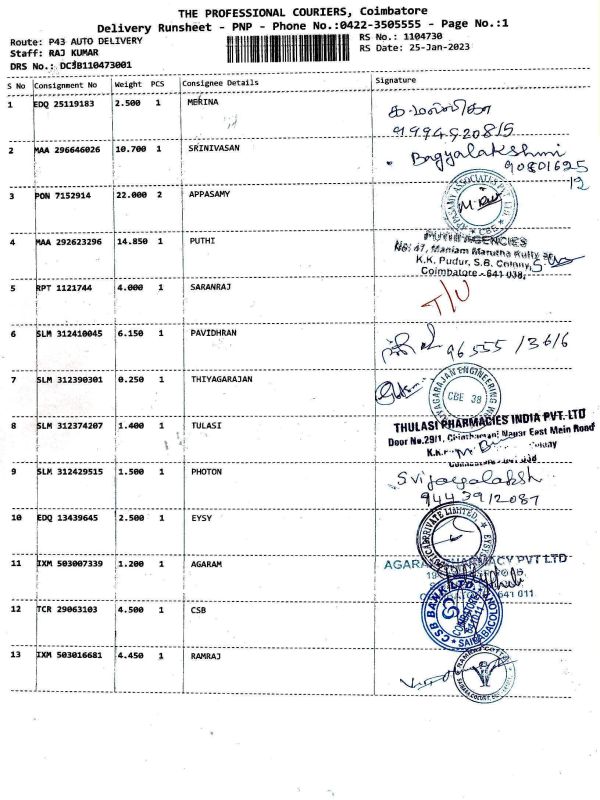 THE PROFESSIONAL COURIERS, Coimbatore
Delivery Runsheet - PNP - Phone No.:0422-3505555 - Page No.:1
Route: P43 AUTO DELIVERY RS No.: 1104730
Staff: RAJ KUMAR RS Date: 25-Jan-2023
DRS No.: DCJB110473001
S No Consignment No Weight PCS Consignee Details Signature
1 EDQ 25119183 2.500 1 MERINA
2 MAA 296646026 10.700 1 SRINIVASAN Bagyalakshmi
90801625
12
3 PON 7152914 22.000 2 APPASAMY
APPASAMY ASSOCIATES PVT LTD CBE
4 MAA 292623296 14.850 1 PUTHI PUTHI AGENCIES
No: 47, Maniam Marutha Kutty
K.K. Pudur, S.B. Colony,
Coimbatore - 641 038,
5 RPT 1121744 4.000 1 SARANRAJ T/U
6 SLM 312410045 6.150 1 PAVIDHRAN 96555 13616
7 SLM 312390301 0.250 1 THIYAGARAJAN CBE 38
8 SLM 312374207 1.400 1 TULASI THULASI PHARMACIES INDIA PVT. LTD
Door No.29/1, Chinthamani Nagar East Main Road
9 SLM 312429515 1.500 1 PHOTON
9443912087
10 EDQ 13439645 2.500 1 EYSY PRIVATE LIMITED
11 IXM 503007339 1.200 1 AGARAM PVT LTD
641 011
12 TCR 29063103 4.500 1 CSB CSB BANK LTD. SAIBABACOLONY
13 IXM 503016681 4.450 1 RAMRAJ